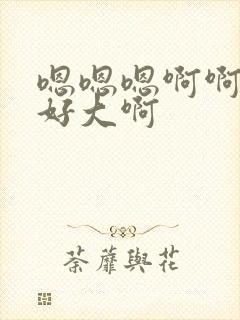 嗯嗯嗯啊啊
好大啊
荼蘼與花